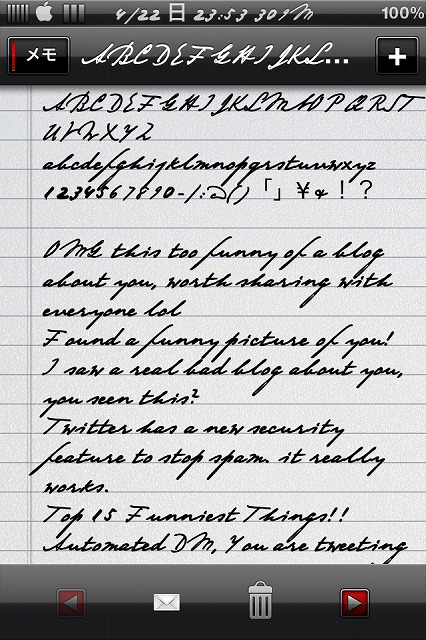 4/22 日 23:53 309M 100%
メモ ABCDEFGHIJKL... +
ABCDEFGHIJKLMNOPQRST
UVWXYZ
abcdefghijklmnopqrstuvwxyz
1234567890-/:;@()「」¥&！？
OMG this too funny of a blog
about you, worth sharing with
everyone lol
Found a funny picture of you!
I saw a real bad blog about you,
you seen this?
Twitter has a new security
feature to stop spam. it really
works.
Top 15 Funniest Things!!
Automated DM, You are tweeting